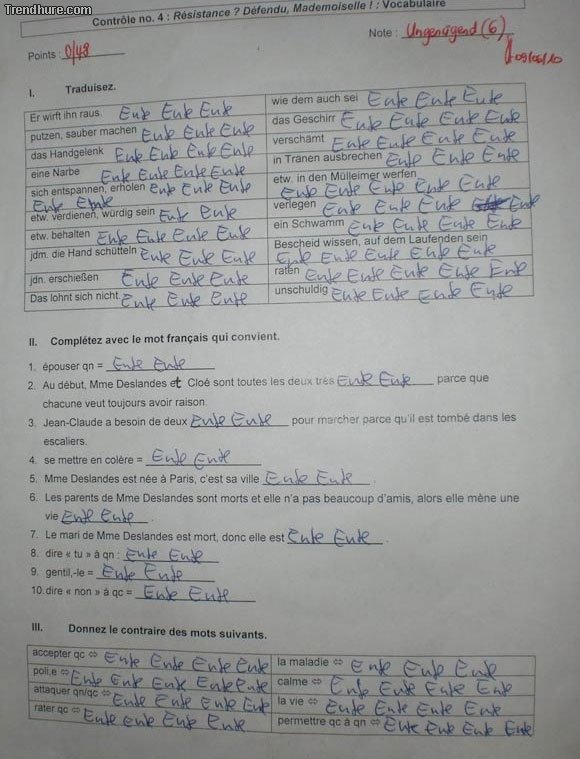 Trendhure.com
Contrôle no. 4 : Résistance ? Défendu, Mademoiselle ! : Vocabulaire
Note : Ungenügend (6)
Points : 0/48
09/06/10
I. Traduisez.
Er wirft ihn raus. Ente Ente Ente
wie dem auch sei Ente Ente Ente
putzen, sauber machen Ente Ente Ente
das Geschirr Ente Ente Ente Ente
das Handgelenk Ente Ente Ente Ente
verschämt Ente Ente Ente Ente
eine Narbe Ente Ente Ente Ente
in Tränen ausbrechen Ente Ente Ente
sich entspannen, erholen Ente Ente Ente
Ente Ente
etw. in den Mülleimer werfen
Ente Ente Ente Ente Ente
etw. verdienen, würdig sein Ente Ente
verlegen Ente Ente Ente Ente
etw. behalten Ente Ente Ente Ente
ein Schwamm Ente Ente Ente Ente
jdm. die Hand schütteln Ente Ente Ente
Bescheid wissen, auf dem Laufenden sein
Ente Ente Ente Ente Ente
jdn. erschießen Ente Ente Ente
raten Ente Ente Ente Ente Ente
Das lohnt sich nicht. Ente Ente Ente
unschuldig Ente Ente Ente Ente
II. Complétez avec le mot français qui convient.
1. épouser qn = Ente Ente
2. Au début, Mme Deslandes et Cloé sont toutes les deux très Ente Ente parce que
chacune veut toujours avoir raison.
3. Jean-Claude a besoin de deux Ente Ente pour marcher parce qu'il est tombé dans les
escaliers.
4. se mettre en colère = Ente Ente
5. Mme Deslandes est née à Paris, c'est sa ville Ente Ente .
6. Les parents de Mme Deslandes sont morts et elle n'a pas beaucoup d'amis, alors elle mène une
vie Ente Ente .
7. Le mari de Mme Deslandes est mort, donc elle est Ente Ente .
8. dire « tu » à qn : Ente Ente
9. gentil,-le = Ente Ente
10. dire « non » à qc = Ente Ente
III. Donnez le contraire des mots suivants.
accepter qc ⇔ Ente Ente Ente Ente
la maladie ⇔ Ente Ente Ente
poli,e ⇔ Ente Ente Ente Ente Ente
calme ⇔ Ente Ente Ente Ente
attaquer qn/qc ⇔ Ente Ente Ente Ente
la vie ⇔ Ente Ente Ente Ente
rater qc ⇔ Ente Ente Ente Ente
permettre qc à qn ⇔ Ente Ente Ente Ente